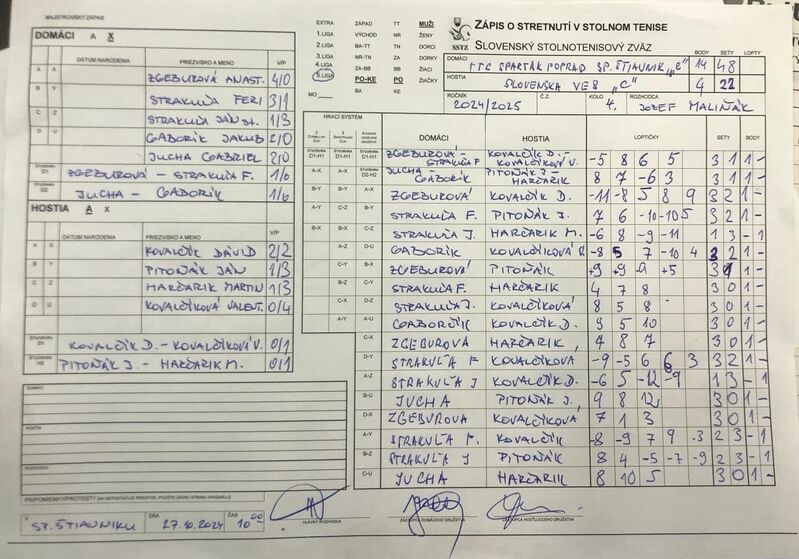 MAJSTROVSKÝ ZÁPAS
DOMÁCI A X
DÁTUM NARODENIA PRIEZVISKO A MENO V/P
A X ZGEBUROVÁ ANAST. 4/0
B Y STRAKUĽA FERI 3/1
C Z STRAKUĽA JÁN st. 1/3
D U GABORIK JAKUB 2/0
JUCHA GABRIEL 2/0
ŠTVORHRA D1 ZGEBUROVÁ - STRAKUĽA F. 1/0
ŠTVORHRA D2 JUCHA - GABORIK 1/0
HOSTIA A X
DÁTUM NARODENIA PRIEZVISKO A MENO V/P
A X KOVALČÍK DÁVID 2/2
B Y PITOŇÁK JÁN 1/3
C Z HARČARIK MARTIN 1/3
D U KOVALČÍKOVÁ VALENT. 0/4
ŠTVORHRA KOVALČÍK D. - KOVALČÍKOVÁ V. 0/1
ŠTVORHRA H2 PITOŇÁK J. - HARČARIK M. 0/1
DOMÁCI
HOSTIA
ROZHODCA
PRIPOMIENKY/PROTESTY (AK NEPOSTAČUJE PRIESTOR, POUŽITE ZADNÚ STRANU ORIGINÁLU)
SP. ŠTIAVNIKU DŇA 27.10.2024 ČAS 10 00
HLAVNÝ ROZHODCA ZÁSTUPCA DOMÁCEHO DRUŽSTVA ZÁSTUPCA HOSŤUJÚCEHO DRUŽSTVA
EXTRA ZÁPAD TT MUŽI
1.LIGA VÝCHOD NR ŽENY
2.LIGA BA-TT TN DORCI
3.LIGA NR-TN ZA DORKY
4.LIGA ZA-BB BB ŽIACI
5.LIGA PO-KE PO ŽIAČKY
MO BA KE
SSTZ
ZÁPIS O STRETNUTÍ V STOLNOM TENISE
SLOVENSKÝ STOLNOTENISOVÝ ZVÄZ
BODY SETY LOPTY
DOMÁCI TTC SPARTÁK POPRAD SP. ŠTIAVNIK „E" 14 48
HOSTIA SLOVENSKA VES „C" 4 22
ROČNÍK 2024/2025 Č.Z. KOLO 4. ROZHODCA JOZEF MALIŇÁK
HRACÍ SYSTÉM
DOMÁCI HOSTIA LOPTIČKY SETY BODY
ŠTVORHRA D1-H1 ZGEBUROVÁ - STRAKUĽA F. KOVALČÍK D. - KOVALČÍKOVÁ V. -5 8 6 5 3 1 1 -
JUCHA - GABORIK PITOŇÁK J - HARČARIK 8 7 -6 3 3 1 1 -
ZGEBUROVÁ KOVALČÍK D. -11 -8 5 8 9 3 2 1 -
STRAKUĽA F. PITOŇÁK J. 7 6 -10 -10 5 3 2 1 -
STRAKUĽA J. HARČARIK M. -6 8 -9 -11 1 3 - 1
GABORIK KOVALČÍKOVÁ -8 5 7 -10 4 3 2 1 -
ZGEBUROVÁ PITOŇÁK +9 +9 +5
STRAKUĽA F. HARČARIK 4 7 8 3 0 1 -
STRAKUĽA J. KOVALČÍKOVÁ 8 5 8 3 0 1 -
GABORČÍK KOVALČÍK 9 5 10 3 0 1 -
C-X ZGEBUROVÁ HARČARIK 4 8 7 3 0 1 -
D-Y STRAKUĽA F KOVALČÍKOVA -9 -5 6 6 3 3 2 1 -
A-Z STRAKUĽA J KOVALČÍK D. -6 5 -12 -9 1 3 - 1
B-U JUCHA PITOŇÁK J. 9 8 12 3 0 1 -
D-X ZGEBUROVA KOVALČÍKOVA 7 1 3 3 0 1 -
A-Y STRAKUĽA F. KOVALČÍK -8 -9 7 9 -3 2 3 - 1
B-Z STRAKUĽA J PITOŇÁK 8 4 -5 -7 -9 2 3 - 1
C-U JUCHA HARČARIK 8 10 5 3 0 1 -